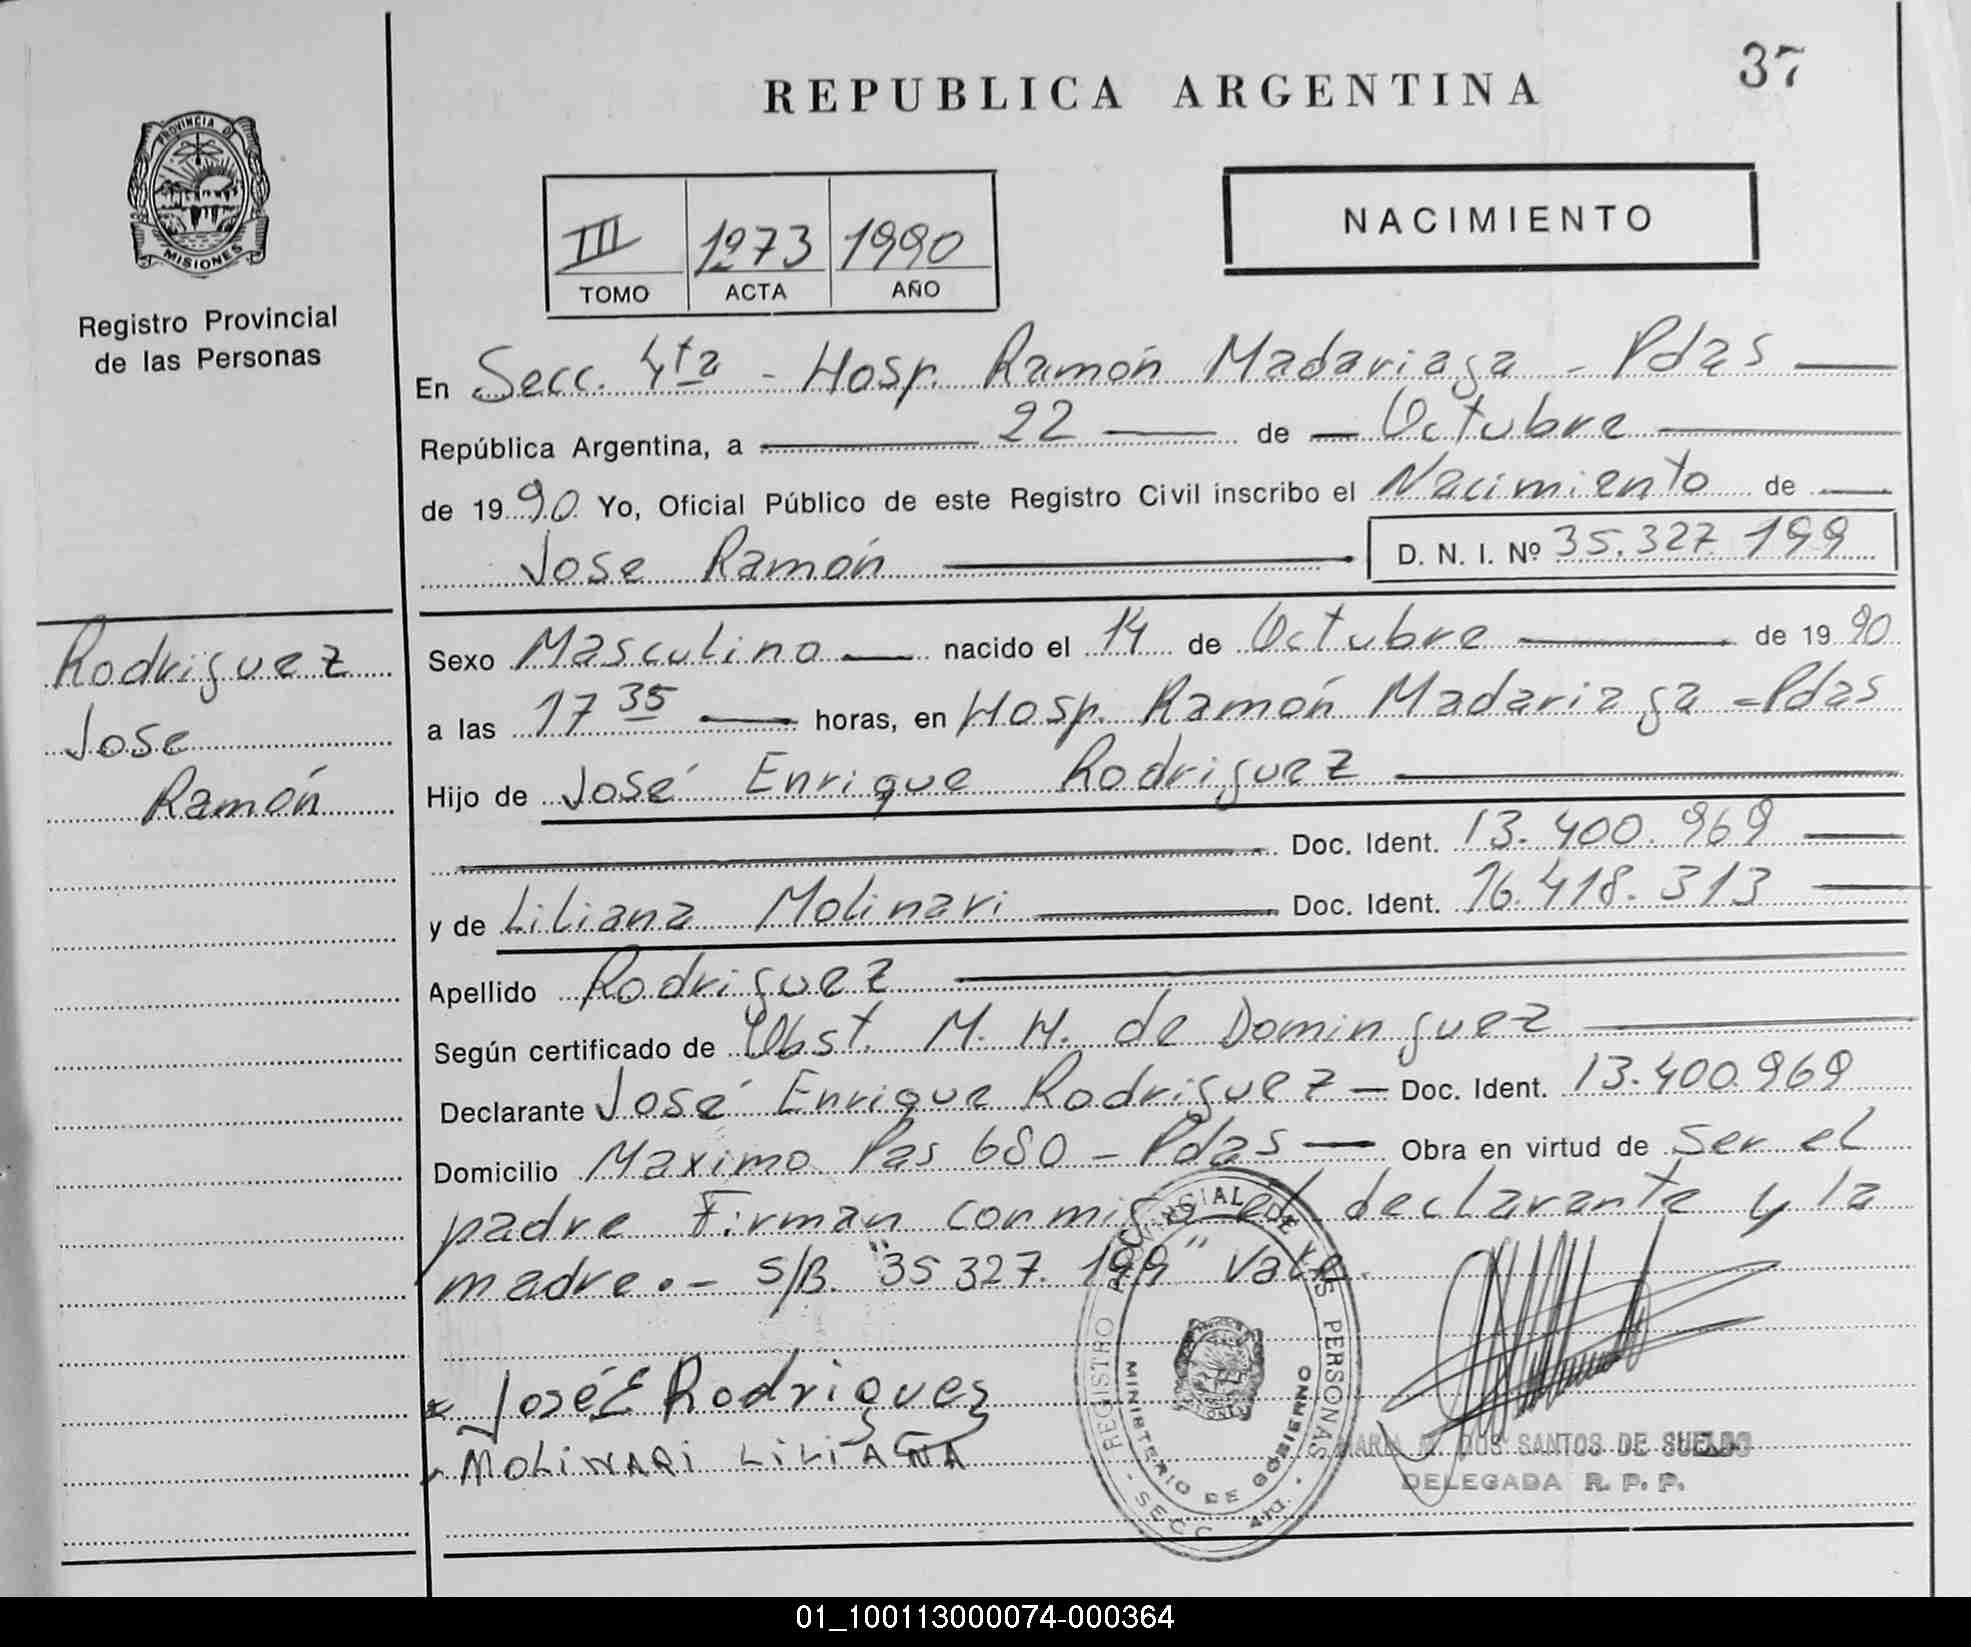 37
REPUBLICA ARGENTINA
PROVINCIA DE
MISIONES
Registro Provincial
de las Personas
III 1273 1990
TOMO ACTA AÑO
NACIMIENTO
En Secc. 4ta - Hosp. Ramón Madariaga - Pdas
República Argentina, a 22 de Octubre
de 1990 Yo, Oficial Público de este Registro Civil inscribo el Nacimiento de
Jose Ramón D. N. I. Nº 35.327.199
Rodriguez
Jose
Ramón
Sexo Masculino nacido el 14 de Octubre de 1990
a las 17 35 horas, en Hosp. Ramón Madariaga - Pdas
Hijo de José Enrique Rodriguez
Doc. Ident. 13.400.969
y de Liliana Molinari Doc. Ident. 16.418.313
Apellido Rodriguez
Según certificado de Obst. M. H. de Dominguez
Declarante José Enrique Rodriguez - Doc. Ident. 13.400.969
Domicilio Maximo Pas 680 - Pdas Obra en virtud de ser el
padre Firman conmigo el declarante y la
madre.- S/B. "35 327. 199" Vale.
José E Rodriguez
MOLINARI LILIANA
REGISTRO PROVINCIAL DE LAS PERSONAS
MINISTERIO DE GOBIERNO
- SECC. 4ta. -
MARIA DOS SANTOS DE SUELDO
DELEGADA R. P. P.
01_100113000074-000364